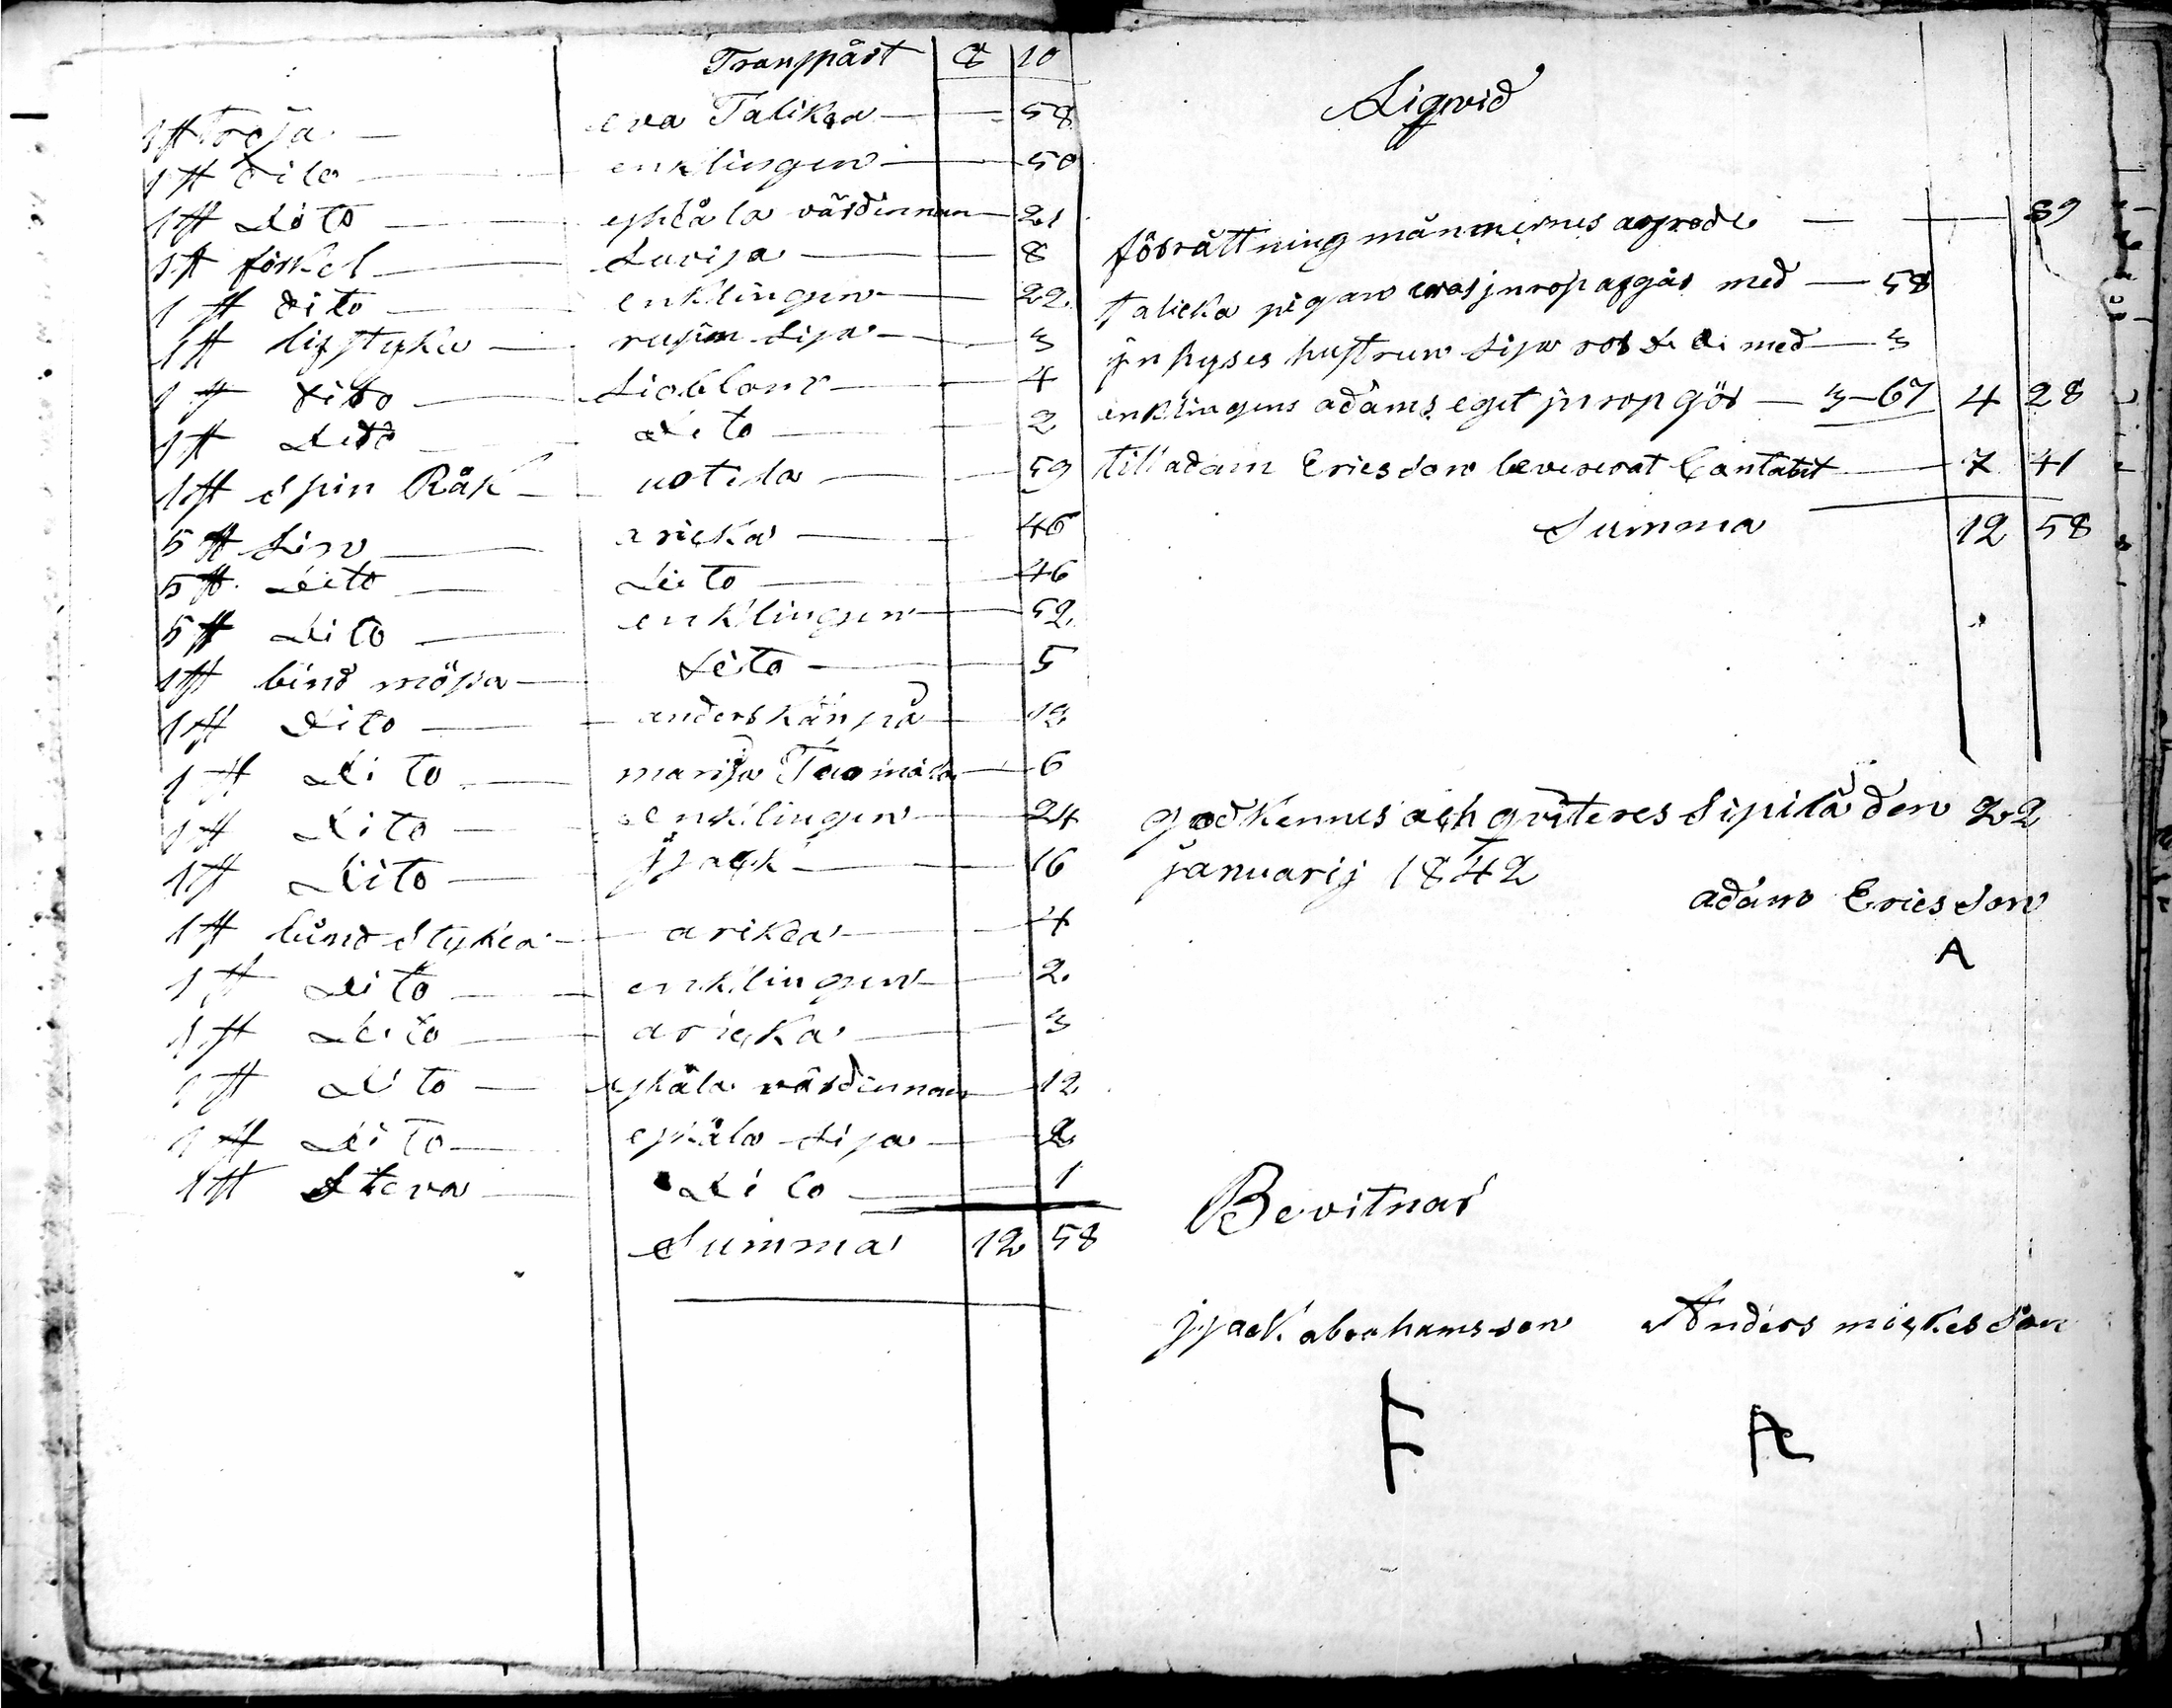 Transpårt 8 10
1 st tröja — eva Talikka — 58
1 st dito — enklingen — 50
1 st Dito — eskåla värdinnan — 21
1 st förkel — Lovisa — 8
1 st dito — enklingen — 22
1 st lifstyke — Lisa — 3
1 st dito — Lioblom — 4
1 st Dito — dito — 2
1 st Spin Råk — uotila — 59
5 st Lin — aricka — 46
5 st Dito — Dito — 46
5 st Dito — enklingen — 52
1 st bind mösa — Dito — 5
1 st Dito — anders kånpå — 12
1 st Dito — marija Tuomåla — 6
1 st Dito — enklingen — 24
1 st Dito — jsack — 16
1 st bind Stycke — aricka — 4
1 st Dito — enklingen — 2
1 st Dito — aricka — 3
1 st Dito — eskåla värdinnan — 12
1 st Dito — eskåla Lisa — 2
1 st Steva — Dito — 1
Summa 12 58
Liqvid
förrättning männernes arfrode — 89
Talicka pigan evas jnrop afgår med — 58
jnhyses hustrun Lisa med — 3
enklingens adams eget jnrop gör — 3–67 4 28
till adam Ericsson levererat Contabit — 7 41
Summa 12 58
godkennes och qviteres Sipilä den 22
januarij 1842
adam Ericsson
A
Bevitnar
jsack abrahamsson Anders mickelson